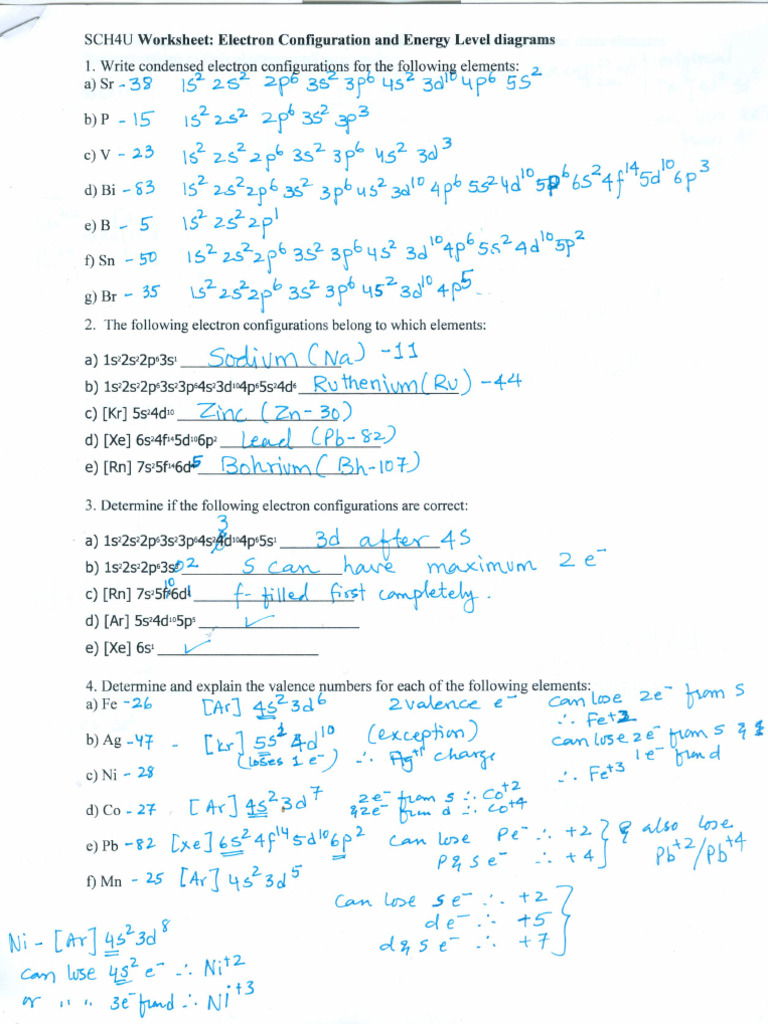 SCH4U Worksheet: Electron Configuration and Energy Level diagrams
1. Write condensed electron configurations for the following elements:
a) Sr - 38 1s² 2s² 2p⁶ 3s² 3p⁶ 4s² 3d¹⁰ 4p⁶ 5s²
b) P - 15 1s² 2s² 2p⁶ 3s² 3p³
c) V - 23 1s² 2s² 2p⁶ 3s² 3p⁶ 4s² 3d³
d) Bi - 83 1s² 2s² 2p⁶ 3s² 3p⁶ 4s² 3d¹⁰ 4p⁶ 5s² 4d¹⁰ 5p⁶ 6s² 4f¹⁴ 5d¹⁰ 6p³
e) B - 5 1s² 2s² 2p¹
f) Sn - 50 1s² 2s² 2p⁶ 3s² 3p⁶ 4s² 3d¹⁰ 4p⁶ 5s² 4d¹⁰ 5p²
g) Br - 35 1s² 2s² 2p⁶ 3s² 3p⁶ 4s² 3d¹⁰ 4p⁵
2. The following electron configurations belong to which elements:
a) 1s²2s²2p⁶3s¹ Sodium (Na) -11
b) 1s²2s²2p⁶3s²3p⁶4s²3d¹⁰4p⁶5s²4d⁶ Ruthenium (Ru) -44
c) [Kr] 5s²4d¹⁰ Zinc (Zn-30)
d) [Xe] 6s²4f¹⁴5d¹⁰6p² Lead (Pb-82)
e) [Rn] 7s²5f¹⁴6d⁵ Bohrium (Bh-107)
3. Determine if the following electron configurations are correct:
3
a) 1s²2s²2p⁶3s²3p⁶4s²4d¹⁰4p⁶5s¹ 3d after 4s
b) 1s²2s²2p⁶3s² s can have maximum 2 e⁻
c) [Rn] 7s²5f¹⁰6d¹ f- filled first completely.
d) [Ar] 5s²4d¹⁰5p⁵ ✓
e) [Xe] 6s¹ ✓
4. Determine and explain the valence numbers for each of the following elements:
a) Fe -26 [Ar] 4s² 3d⁶ 2 valence e⁻ can lose 2e⁻ from s
∴ Fe⁺²
b) Ag -47 - [Kr] 5s¹ 4d¹⁰ (exception) can lose 2e⁻ from s &
(loses 1 e⁻) ∴ Ag⁺¹ charge 1e⁻ from d
c) Ni - 28 ∴ Fe⁺³
d) Co - 27 [Ar] 4s² 3d⁷ 2e⁻ from s ∴ Co⁺²
&2e⁻ from d ∴ Co⁺⁴
e) Pb -82 [Xe] 6s² 4f¹⁴ 5d¹⁰ 6p² can lose Pe⁻ ∴ +2 } & also lose
P & s e⁻ ∴ +4 Pb⁺²/Pb⁺⁴
f) Mn - 25 [Ar] 4s² 3d⁵
can lose s e⁻ ∴ +2
d e⁻ ∴ +5
d & s e⁻ ∴ +7
Ni - [Ar] 4s² 3d⁸
can lose 4s² e⁻ ∴ Ni⁺²
or " " 3e⁻ from d ∴ Ni⁺³